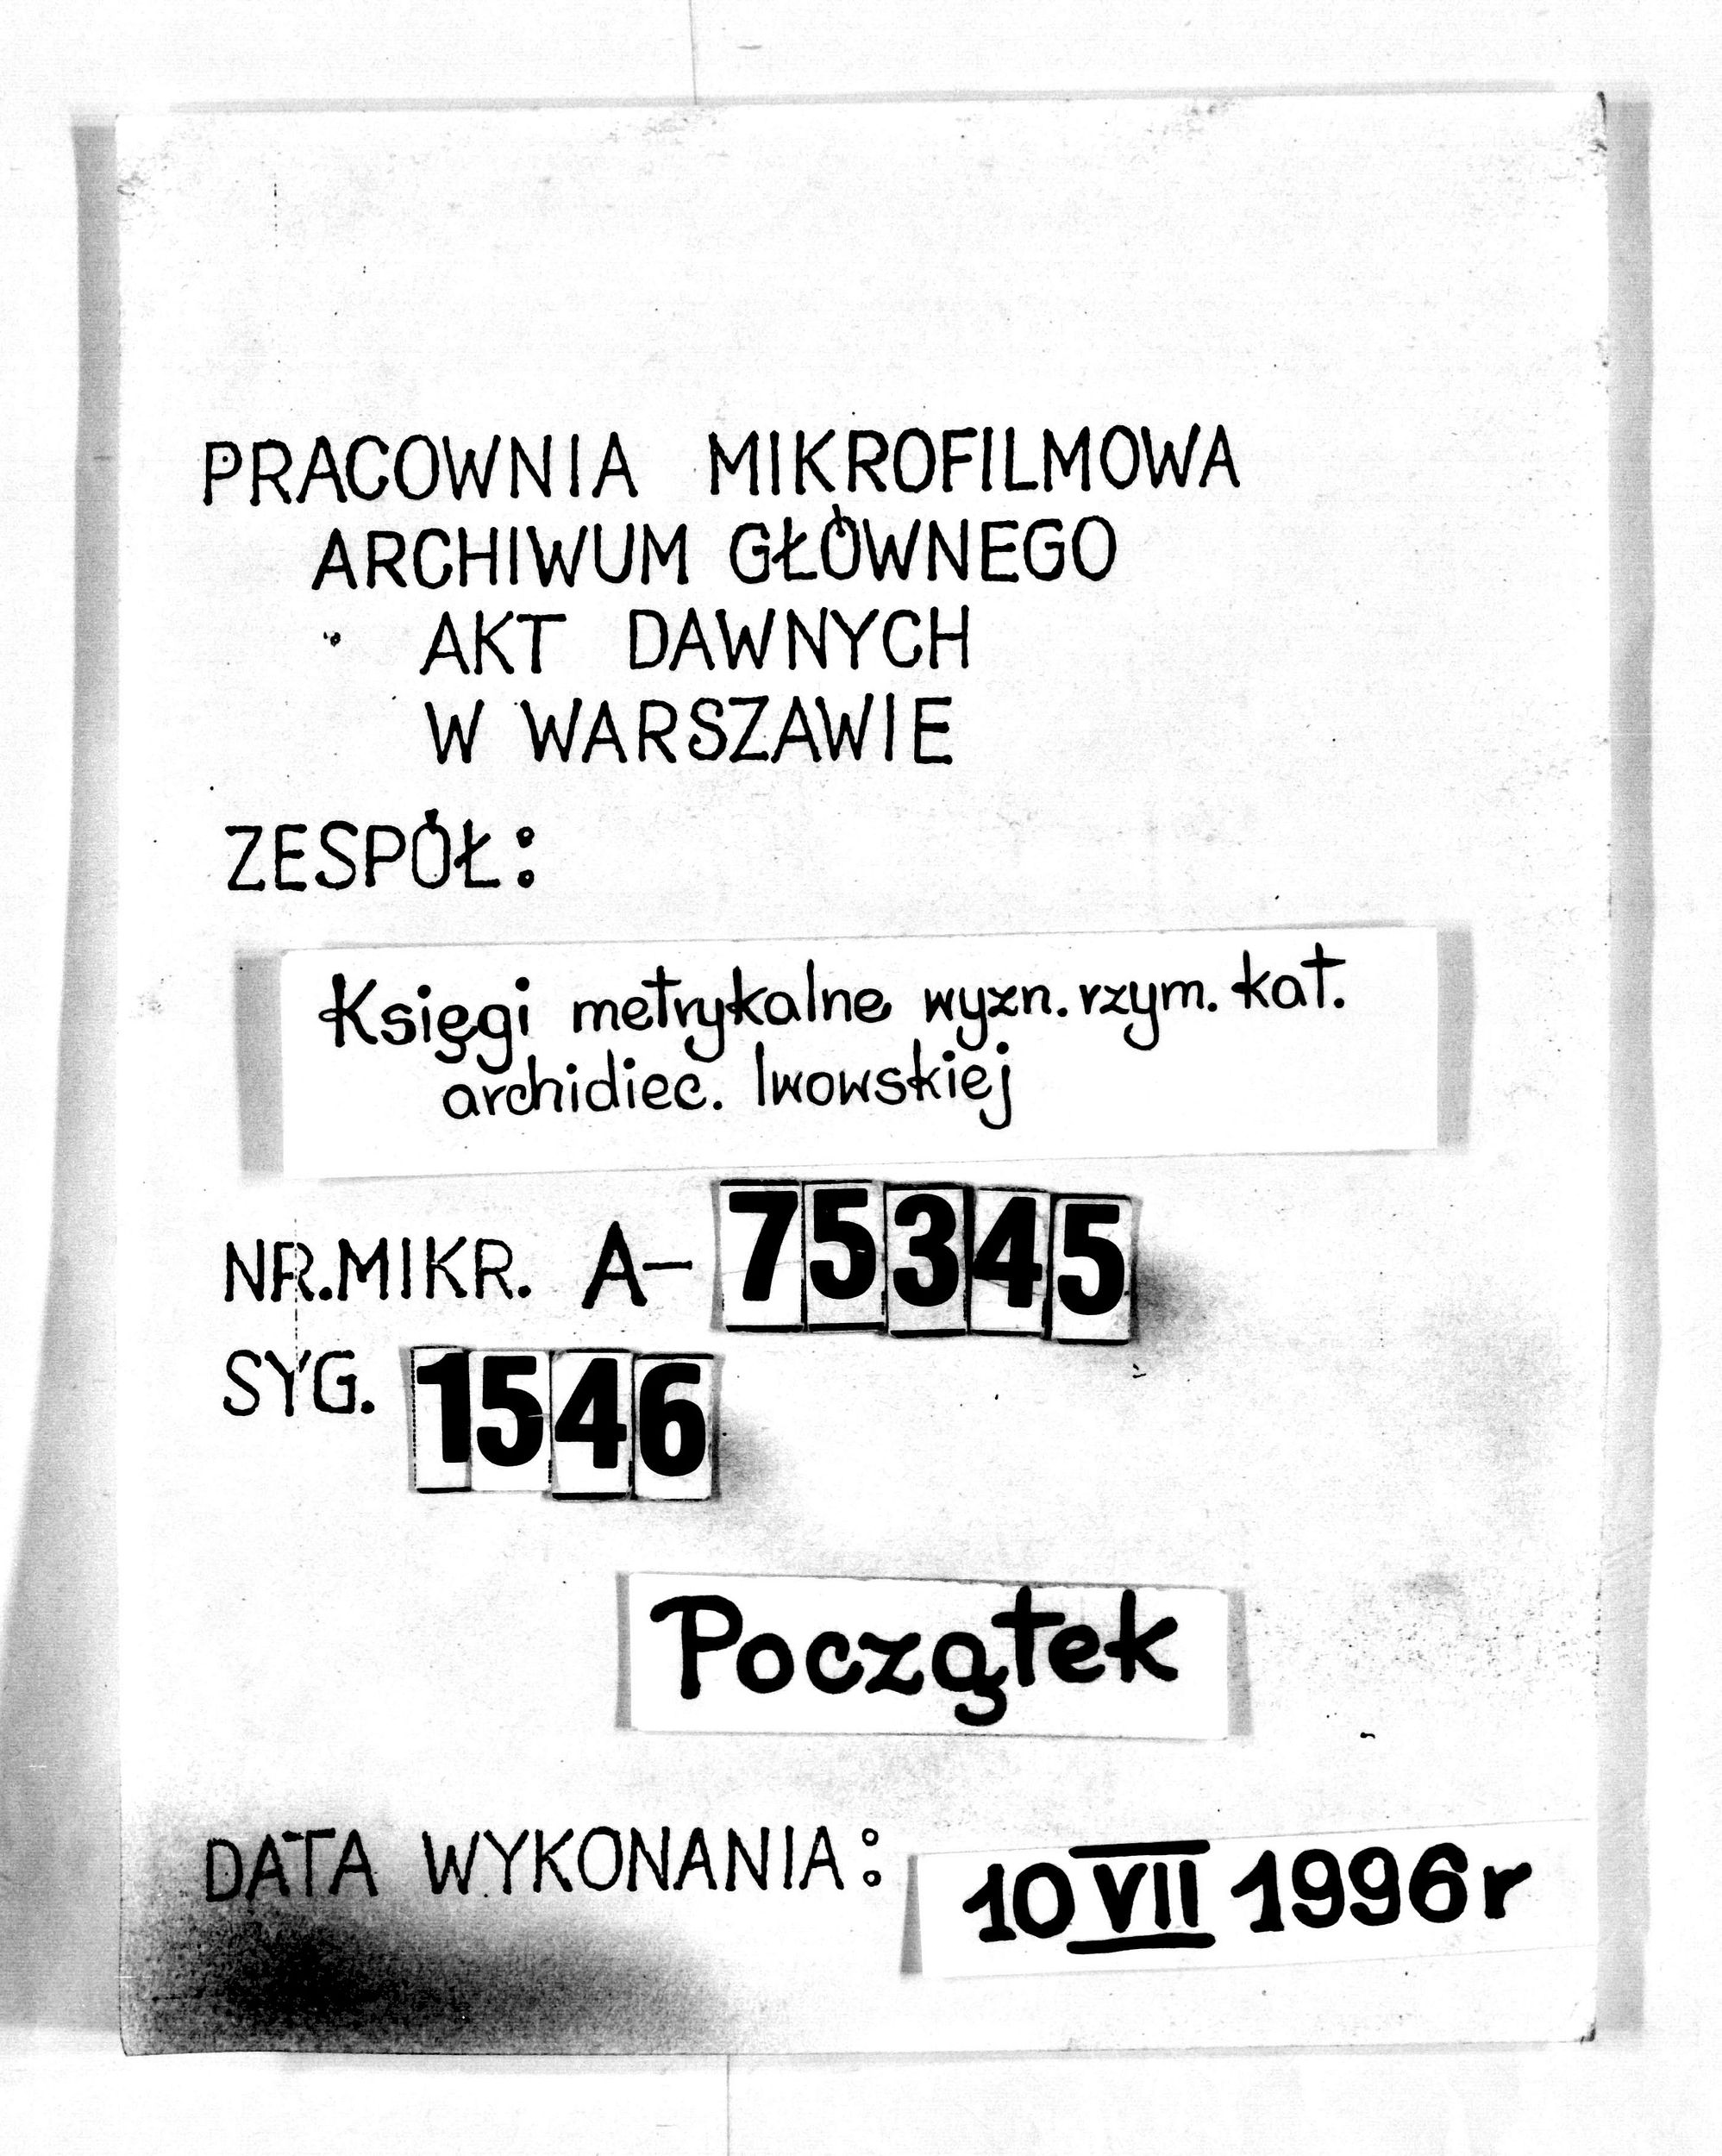 PRACOWNIA MIKROFILMOWA
ARCHIWUM GŁÓWNEGO
AKT DAWNYCH
W WARSZAWIE
ZESPÓŁ:
Księgi metrykalne wyzn. rzym. kat.
archidiec. lwowskiej
NR. MIKR. A- 75345
SYG. 1546
Początek
DATA WYKONANIA: 10 VII 1996r